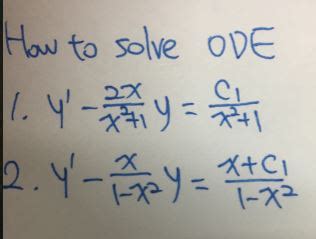 How to solve ODE
1. y' - 2x/(x²+1) y = C₁/(x²+1)
2. y' - x/(1-x²) y = (x+C₁)/(1-x²)